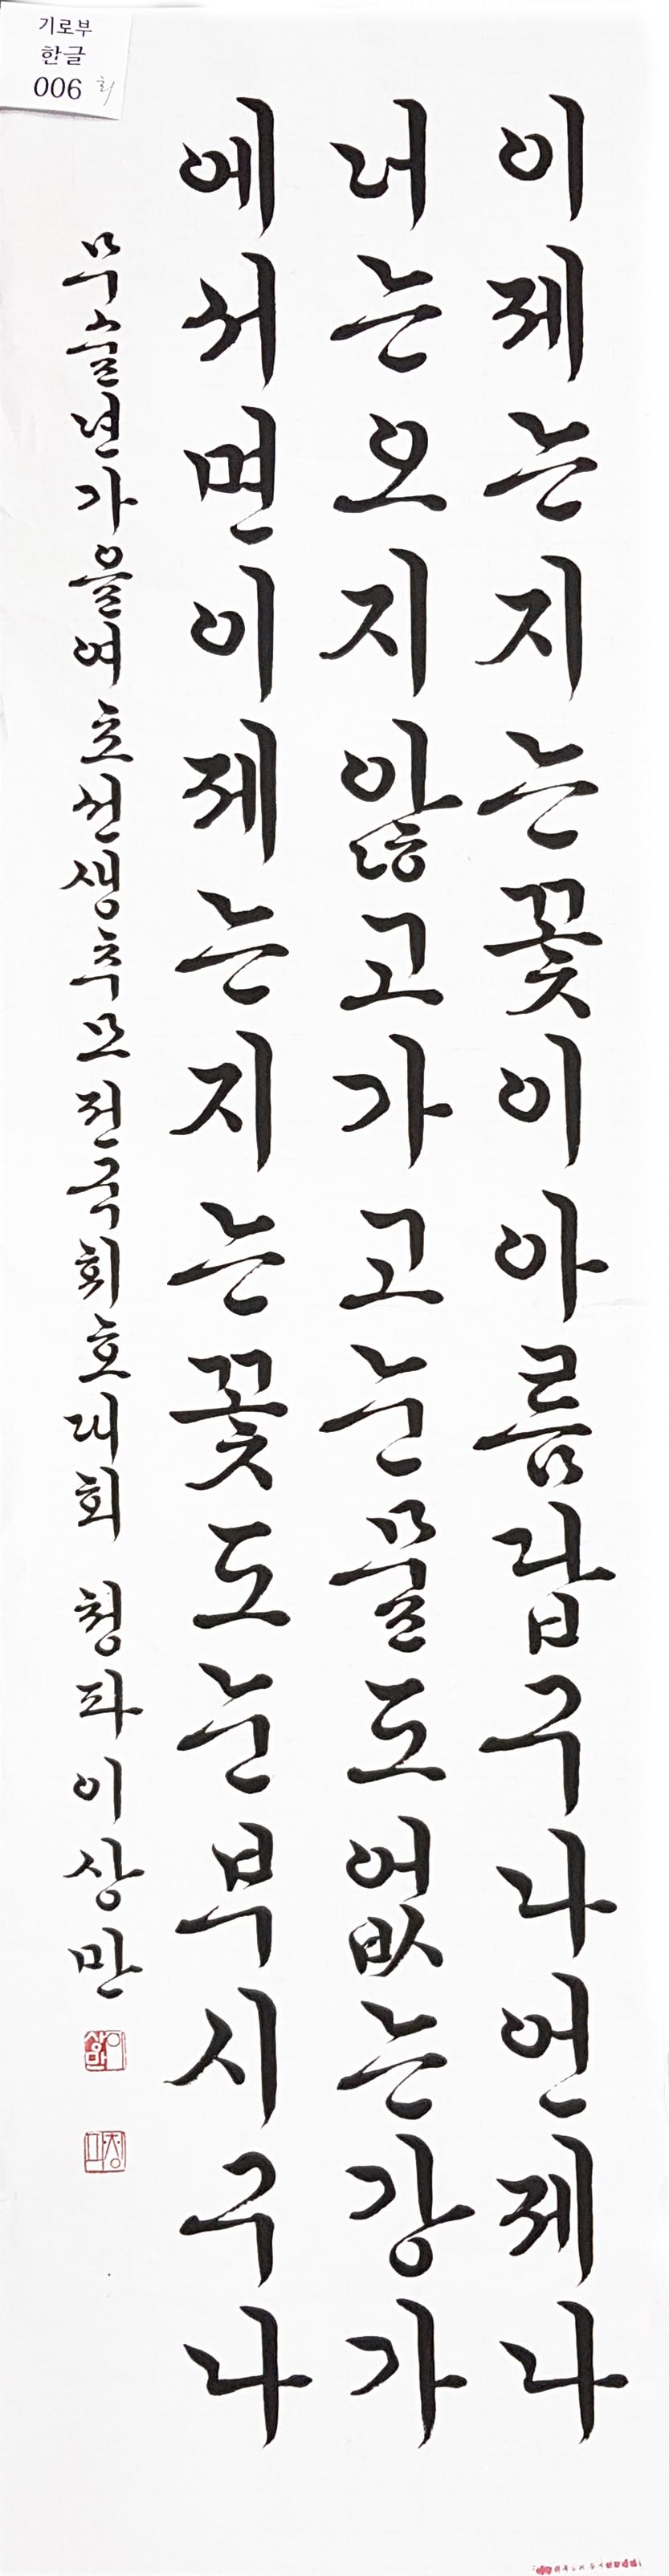 기로부
한글
006
이제는지는꽃이아름답구나언제나
너는오지않고가고눈물도없는강가
에서면이제는지는꽃도눈부시구나
무술년가을여초선생추모전국휘호대회 청파이상만
이상만
청파